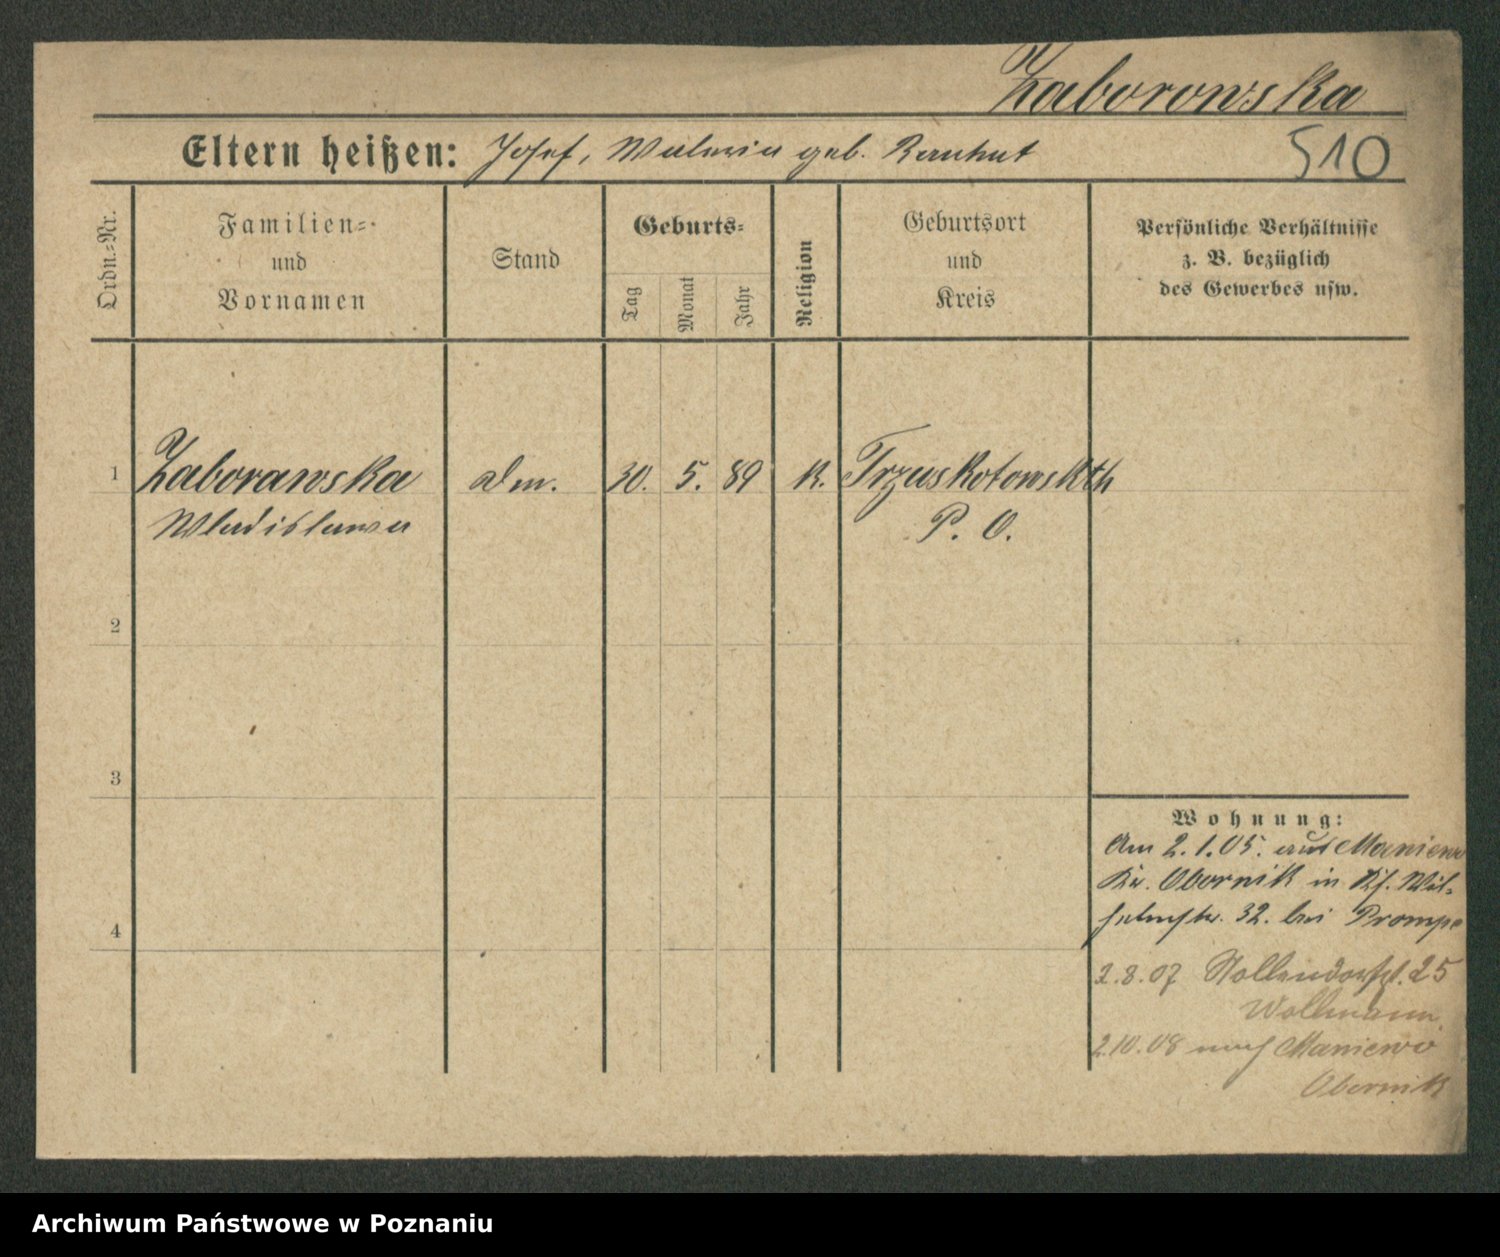 Zaborowska
Eltern heißen: Josef, Waleria geb. Ranhut
510
Ordn.-Nr.
Familien-
und
Vornamen
Stand
Geburts-
Tag
Monat
Jahr
Religion
Geburtsort
und
Kreis
Persönliche Verhältnisse
z. B. bezüglich
des Gewerbes usw.
1 Zaborowska 30. 5. 89 K.
Wladislawa P. O.
2
3
4
Wohnung:
Am 2.1.05. aus Maniewo
Kr. Obornik in Kl. Wil-
helmstr. 32. bei
2.8.07 25
Wollmann
2.10.08 nach Maniewo
Obornik
Archiwum Państwowe w Poznaniu